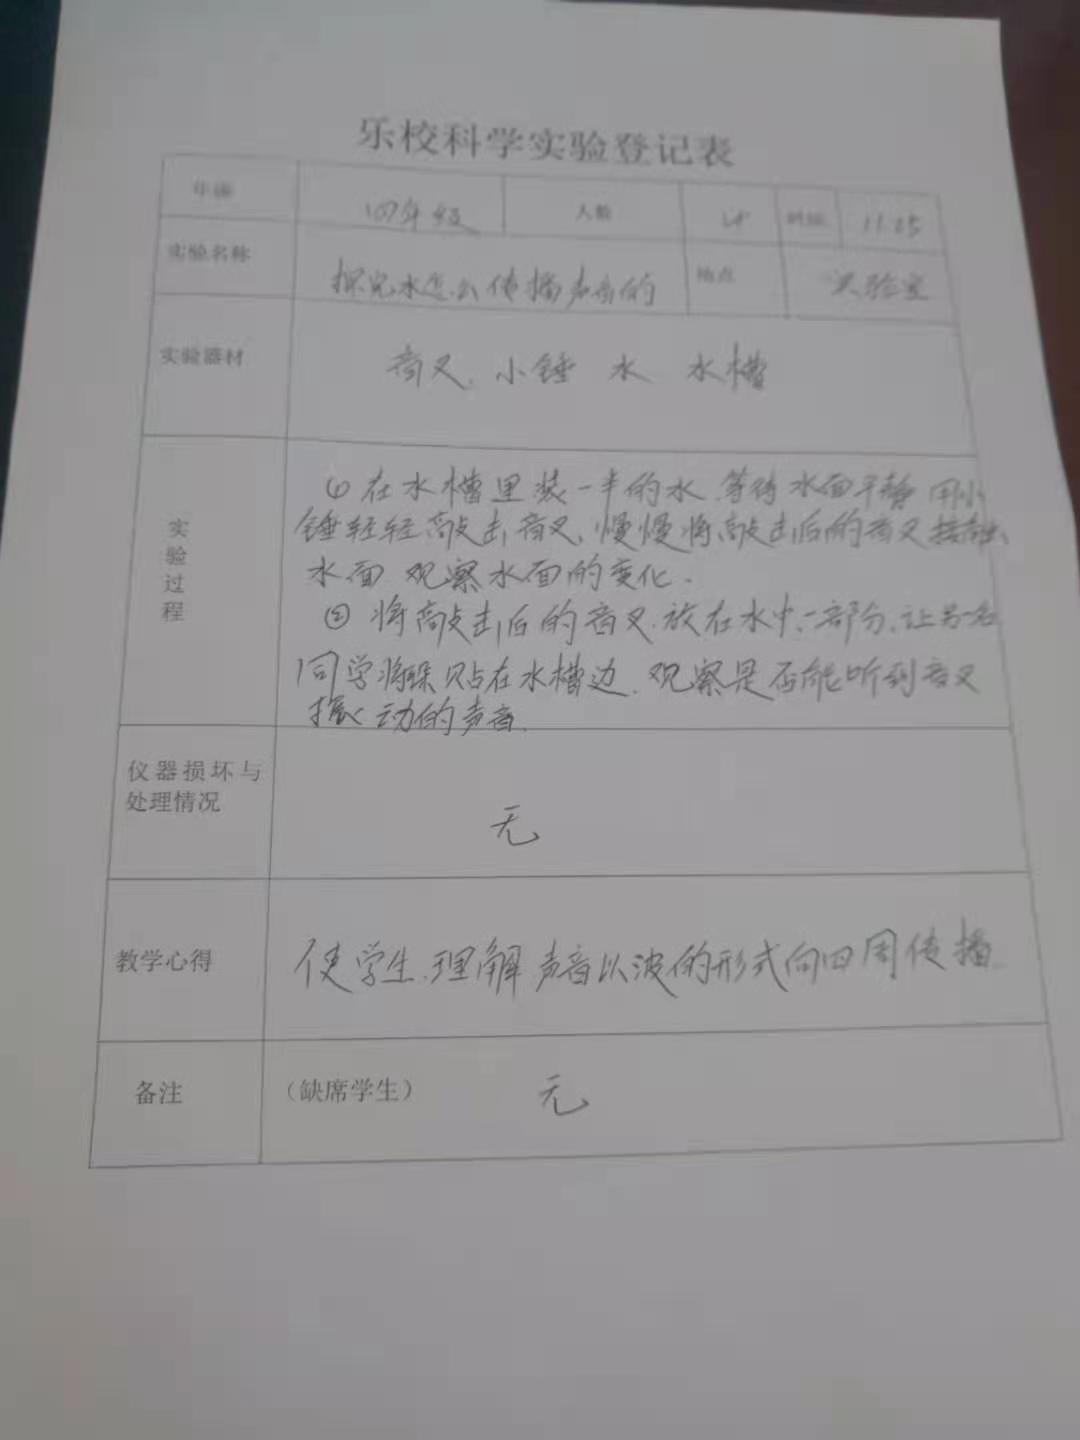 乐校科学实验登记表
四年级 人数 时间 11.25
实验名称 探究水怎么传播声音的 地点 实验室
实验器材 音叉. 小锤 水 水槽
实验过程
① 在水槽里装一半的水.等待水面平静 用小
锤轻轻敲击音叉.慢慢将敲击后的音叉接触
水面 观察水面的变化.
② 将敲击后的音叉.放在水中一部分.让另一名
同学将耳朵贴在水槽边.观察是否能听到音叉
振动的声音.
仪器损坏与
处理情况 无
教学心得 使学生.理解声音以波的形式向四周传播.
备注 （缺席学生） 无